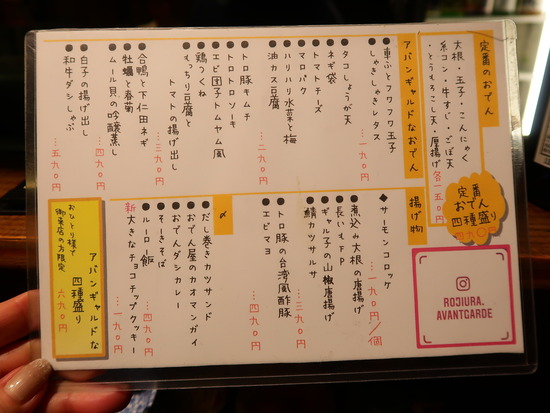 定番のおでん
大根・玉子・こんにゃく
糸コン・牛すじ・ごぼ天
・とうもろこし天・唐揚げ 各一五〇円
定番
おでん
四種盛り
アバンギャルドなおでん
●車ふとフワフワ玉子
●しゃきしゃきレタス
…一九〇円
●タコしょうが天
●ネギ袋
●トマトチーズ
●マロパク
●ハリハリ水菜と梅
●油カス豆腐
…二九〇円
●トロ豚キムチ
●トロトロソーキ
●エビ団子トムヤム風
●鶏うくね
●もっちり豆腐と
トマトの揚げ出し
…三九〇円
●合鴨と下仁田ネギ
●牡蠣と春菊
●ムール貝の吟醸蒸し
…四九〇円
●白子の揚げ出し
●和牛ダシしゃぶ
…五九〇円
揚げ物
◆サーモンコロッケ
…一九〇円/個
●煮込み大根の唐揚げ
●長いもFP
●ギャル子の山椒唐揚げ
●鯖カツサルサ
…三九〇円
●トロ豚の台湾風酢豚
●エビマヨ
…四九〇円
〆
●だし巻きカツサンド
●おでん屋のカオマンガイ
●おでんダシカレー
●そーきそば
●ルーロー飯
…四九〇円
新 大きなチョコチップクッキー
…一九〇円
アバンギャルドな
四種盛り
六九〇円
おひとり様で
御来店の方限定
ROJIURA.
AVANTGARDE